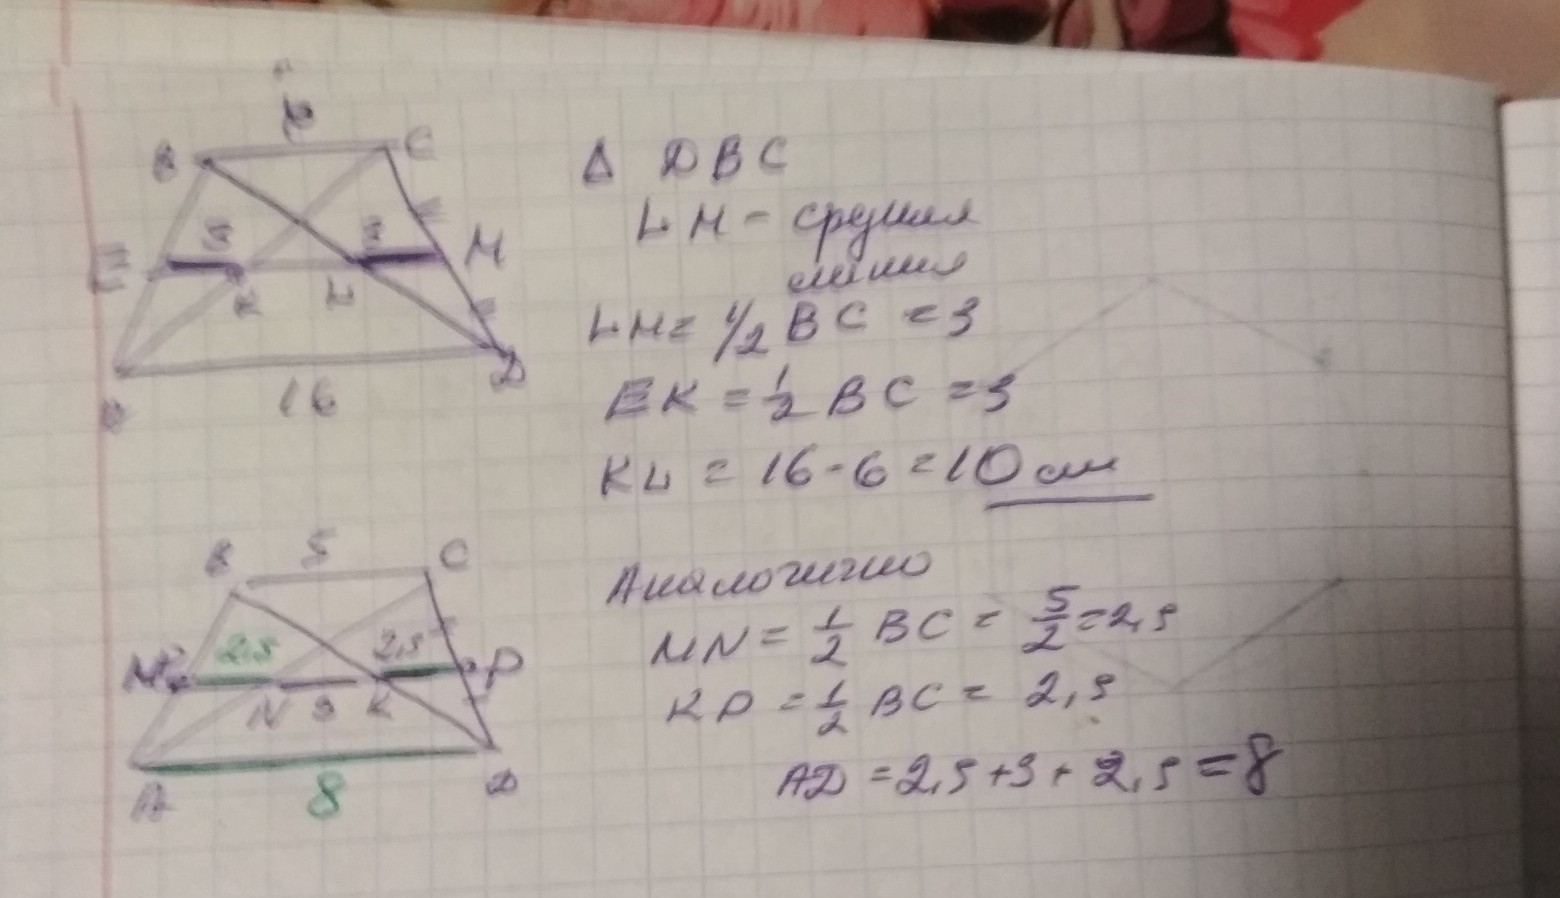 B C
3 3 M
K L
16 D
Δ DBC
LM - средняя
линия
LM = 1/2 BC = 3
EK = 1/2 BC = 3
KL = 16 - 6 = 10 см
B 5 C
M 2,5 2,5 P
N 3 K
A 8 D
Аналогично
MN = 1/2 BC = 5/2 = 2,5
KP = 1/2 BC = 2,5
AD = 2,5 + 3 + 2,5 = 8